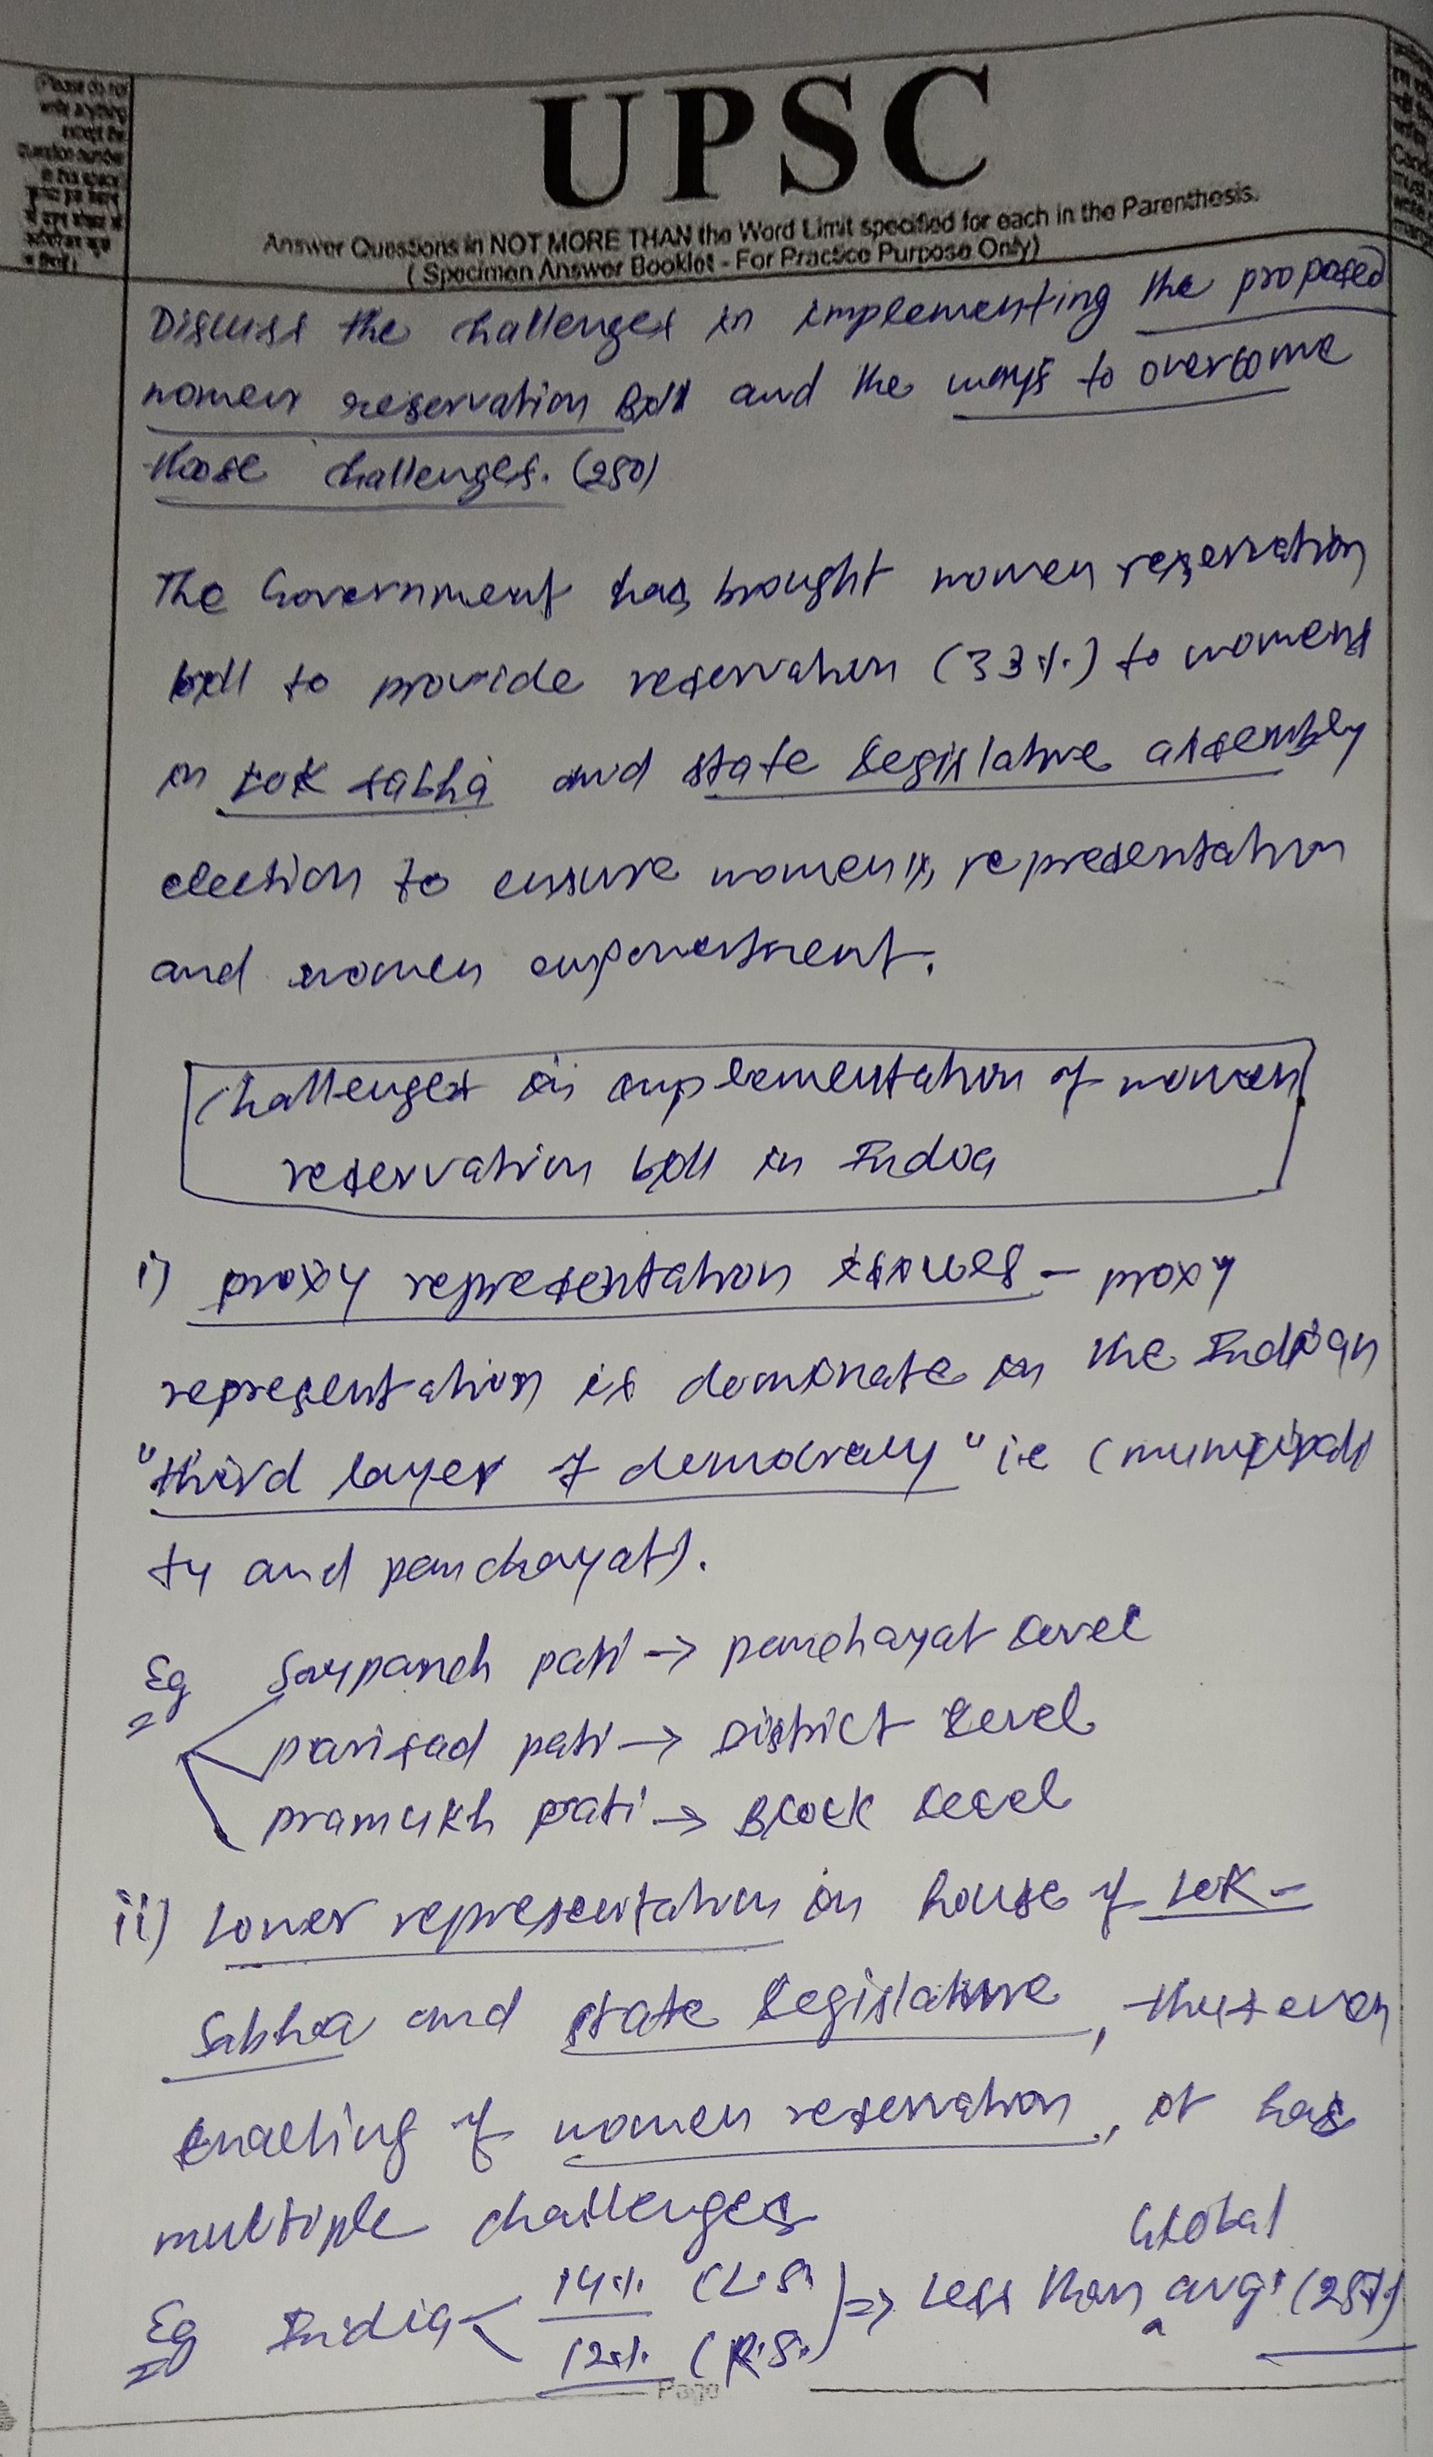 (Please do not
write anything
except the
question number
in this space
UPSC
Answer Questions in NOT MORE THAN the Word Limit specified for each in the Parenthesis.
( Specimen Answer Booklet - For Practice Purpose Only)
Discuss the challenges in implementing the proposed
women reservation Bill and the ways to overcome
those challenges. (250)
The Government has brought women reservation
bill to provide reservation (33%) to womens
in Lok sabha and state legislative assembly
election to ensure women's representation
and women empowerment.
Challenges in implementation of women
reservation bill in India
i) proxy representation issues - proxy
representation is dominate in the Indian
"third layer of democracy" ie (municipali
ty and panchayat).
Eg Sarpanch pati → panchayat level
parisad pati → District level
pramukh pati → Block level
ii) Lower representation in house of Lok-
Sabha and state legislative, thus even
enacting of women reservation, it has
multiple challenges
Global
Eg India < 14% (L.S.) ⇒ Less than avg. (25%)
12% (R.S.)
Page